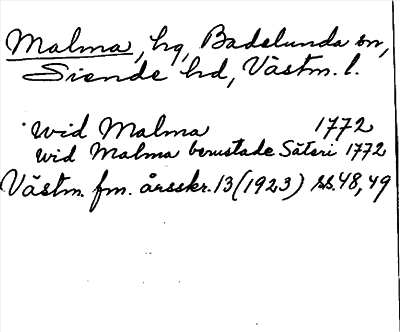 Malma, hg, Badelunda sn,
Siende hd, Västm. l.
wid Malma 1772
wid Malma benustade Säteri 1772
Västm. fm. årsskr. 13 (1923) ss. 48, 49